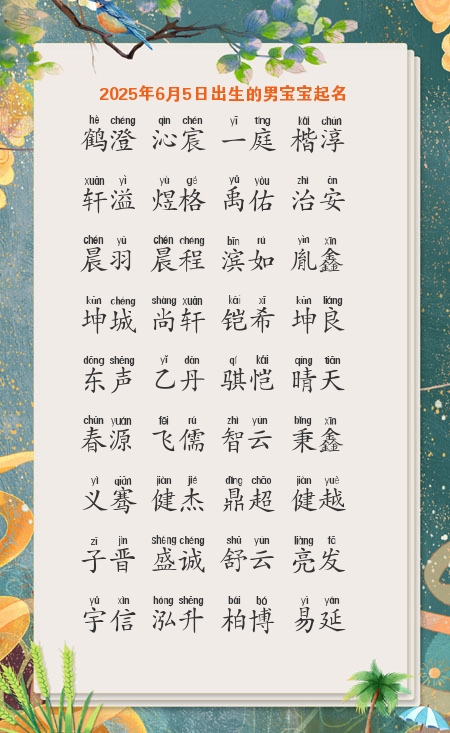 2025年6月5日出生的男宝宝起名
hè chéng qìn chén yī tíng kǎi chún
鹤澄 沁宸 一庭 楷淳
xuān yì yù gé yǔ yòu zhì ān
轩溢 煜格 禹佑 治安
chén yǔ chén chéng bīn rú yìn xīn
晨羽 晨程 滨如 胤鑫
kūn chéng shàng xuān kǎi xī kūn liáng
坤城 尚轩 铠希 坤良
dōng shēng yǐ dān qí kǎi qíng tiān
东声 乙丹 骐恺 晴天
chūn yuán fēi rú zhì yún bǐng xīn
春源 飞儒 智云 秉鑫
yì qiān jiàn jié dǐng chāo jiàn yuè
义骞 健杰 鼎超 健越
zǐ jìn shèng chéng shū yún liàng fā
子晋 盛诚 舒云 亮发
yǔ xìn hóng shēng bǎi bó yì yán
宇信 泓升 柏博 易延